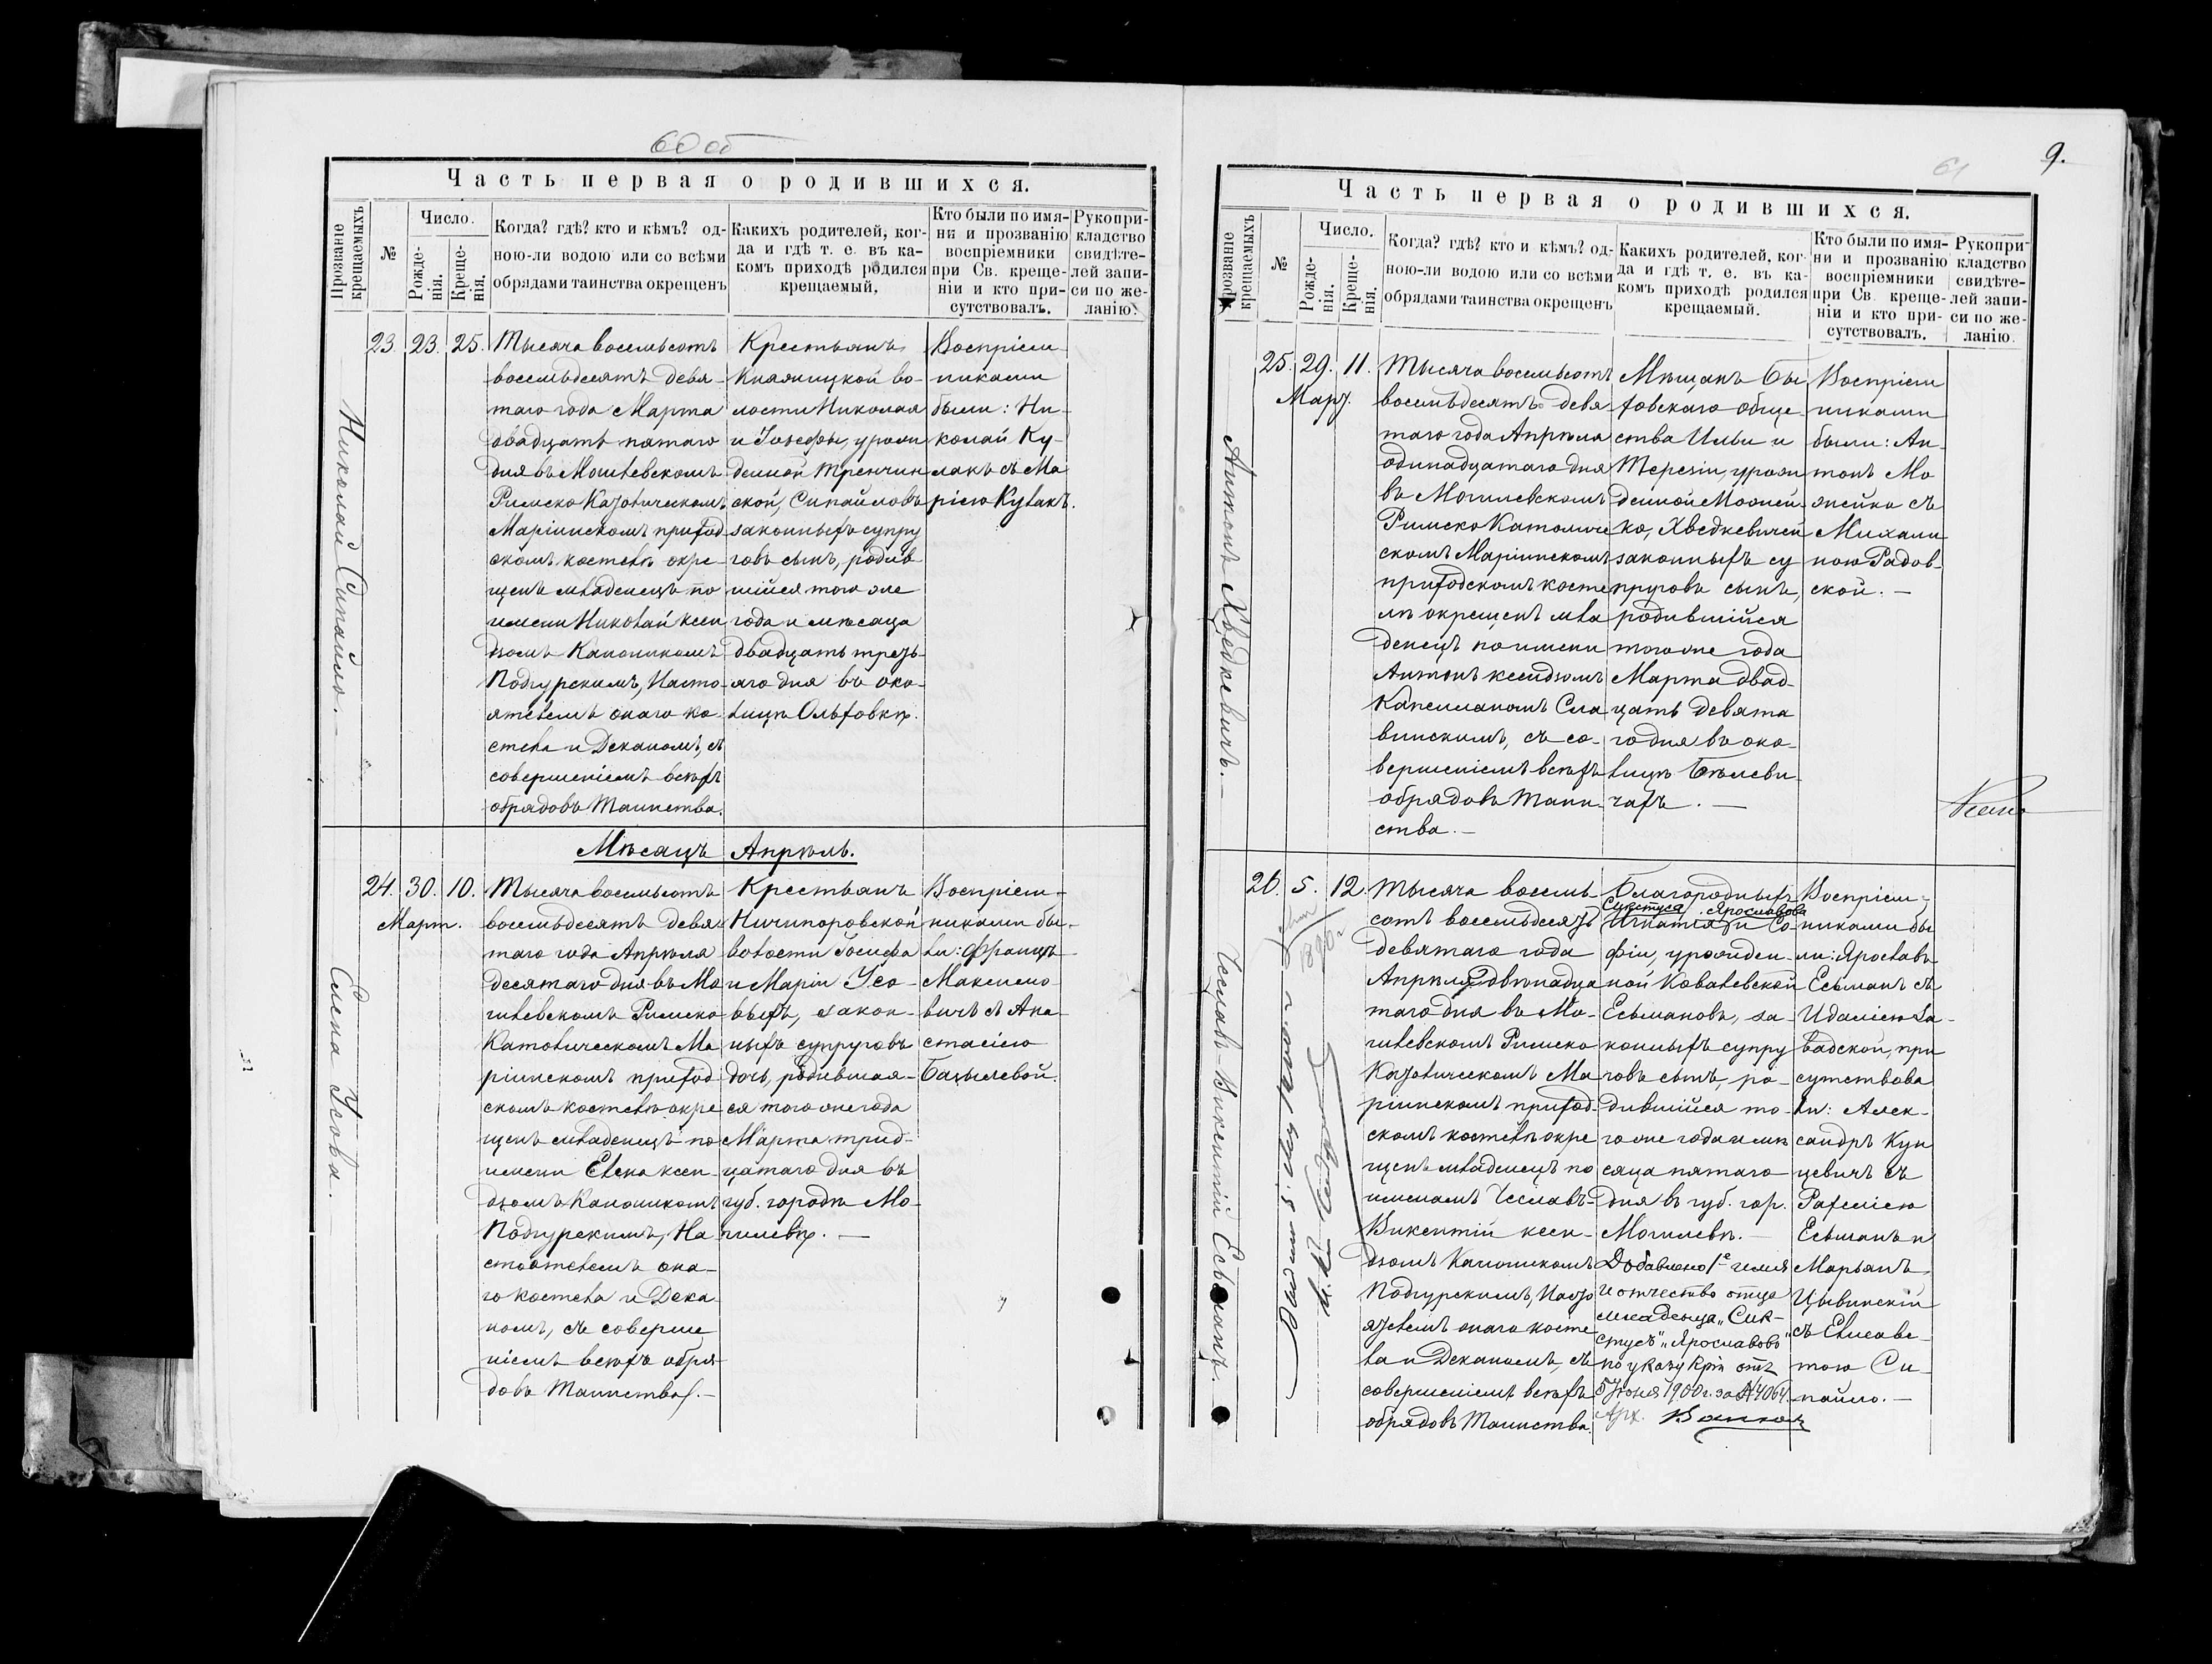 60 об
Часть первая о родившихся.
Прозваніе крещаемыхъ
№
Число.
Рожде-
нія.
Креще-
нія.
Когда? гдѣ? кто и кѣмъ? од-
ною-ли водою или со всѣми
обрядами таинства окрещенъ
Какихъ родителей, ког-
да и гдѣ т. е. въ ка-
комъ приходѣ родился
крещаемый.
Кто были по имя-
ни и прозванію
воспріемники
при Св. креще-
ніи и кто при-
сутствовалъ.
Рукопри-
кладство
свидѣте-
лей запи-
си по же-
ланію.
Николай Сипайло.
23. 23. 25.
Тысяча восемьсотъ
восемьдесятъ девя-
таго года Марта
двадцать пятаго
дня въ Могилевскомъ
Римско Католическомъ
Маріинскомъ приход
скомъ костелѣ окре-
щенъ младенецъ по
имени Николай ксен
дзомъ Каноникомъ
Подгурскимъ, Насто-
ятелемъ онаго ко-
стела и Деканомъ, съ
совершеніемъ всѣхъ
обрядовъ Таинства.
Крестьянъ
Княжицкой во-
лости Николая
и Іозефы, урож
денной Тренчин
ской, Сипайловъ
законныхъ супру
говъ сынъ, родив
шійся того же
года и мѣсяца
двадцать треть-
яго дня въ око-
лицѣ Ольховкѣ.
Воспріем-
никами
были: Ни-
колай Ку-
лакъ съ Ма
ріею Кулакъ.
Мѣсяцъ Апрѣль.
Елена Усова.
24. 30. 10.
Март.
Тысяча восемьсотъ
восемьдесятъ девя-
таго года Апрѣля
десятаго дня въ Мо
гилевскомъ Римско
Католическомъ Ма
ріинскомъ приход
скомъ костелѣ окре
щенъ младенецъ по
имени Елена ксен-
дзомъ Каноникомъ
Подгурскимъ, На
стоятелемъ она-
го костела и Дека-
номъ, съ соверше
ніемъ всѣхъ обря-
довъ Таинства.-
Крестьянъ
Ничипоровской
волости Іосифа
и Маріи Усо-
выхъ, закон-
ныхъ супруговъ
дочь, родившая-
ся того же года
Марта трид-
цатаго дня въ
губ. городѣ Мо-
гилевѣ. —
Воспріем-
никами бы-
ли: Францъ
Максимо-
вичъ съ Ана-
стасіею
Бацылевой.
61
9.
Часть первая о родившихся.
Прозваніе крещаемыхъ
№
Число.
Рожде-
нія.
Креще-
нія.
Когда? гдѣ? кто и кѣмъ? од-
ною-ли водою или со всѣми
обрядами таинства окрещенъ
Какихъ родителей, ког-
да и гдѣ т. е. въ ка-
комъ приходѣ родился
крещаемый.
Кто были по имя-
ни и прозванію
воспріемники
при Св. креще-
ніи и кто при-
сутствовалъ.
Рукопри-
кладство
свидѣте-
лей запи-
си по же-
ланію.
Антонъ Хведкевичъ.
25. 29. 11.
Март.
Тысяча восемьсотъ
восемьдесятъ девя
таго года Апрѣля
одинадцатаго дня
въ Могилевскомъ
Римско Католиче
скомъ Маріинскомъ
приходскомъ косте
лѣ окрещенъ мла
денецъ по имени
Антонъ ксендзомъ
Капелланомъ Сла
винскимъ, съ со-
вершеніемъ всѣхъ
обрядовъ Таин-
ства.-
Мѣщанъ Бы
ховскаго обще-
ства Ильи и
Терезіи, урож
деннойМожей-
ко, Хведкевичей
законныхъ су
пруговъ сынъ,
родившійся
того же года
Марта двад-
цать девята
го дня въ око-
лицѣ Бѣлеви-
чахъ. —
Воспріем
никами
были: Ан-
тонъ Мо
жейко съ
Михали
ною Радов-
ской. —
Чеславъ-Викентій Есьманъ.
26. 5. 12.
Тысяча восемь-
сотъ восемьдесятъ
девятаго года
Апрѣля двѣнадца
таго дня въ Мо-
гилевскомъ Римско
Католическомъ Ма
ріинскомъ приход-
скомъ костелѣ окре
щенъ младенецъ по
именамъ Чеславъ-
Викентій ксен-
дзомъ Каноникомъ
Подгурскимъ, Насто
ятелемъ онаго косте
ла и Деканомъ, съ
совершеніемъ всѣхъ
обрядовъ Таинства.
Благородныхъ
Сикстуса Ярославова
Игнатія и Со-
фіи, урожден-
ной Ковалевской
Есьмановъ, за-
конныхъ супру
говъ сынъ, ро-
дившійся то-
го же года и мѣ
сяца пятаго
дня въ губ. гор.
Могилевѣ. —
Добавлено 1е имя
и отчество отца
младенца „Сик-
стусъ" „Ярославовъ"
по указу Крія отъ
5 Іюня 1900 г. за №4064.
Воспріем-
никами бы
ли: Ярославъ
Есьманъ съ
Идаліею За-
вадской, при
сутствова
ли: Алек-
сандръ Кун
цевичъ съ
Рафаліею
Есьманъ и
Марьянъ
Цывинскій
съ Елисаве-
тою Си-
пайло. —